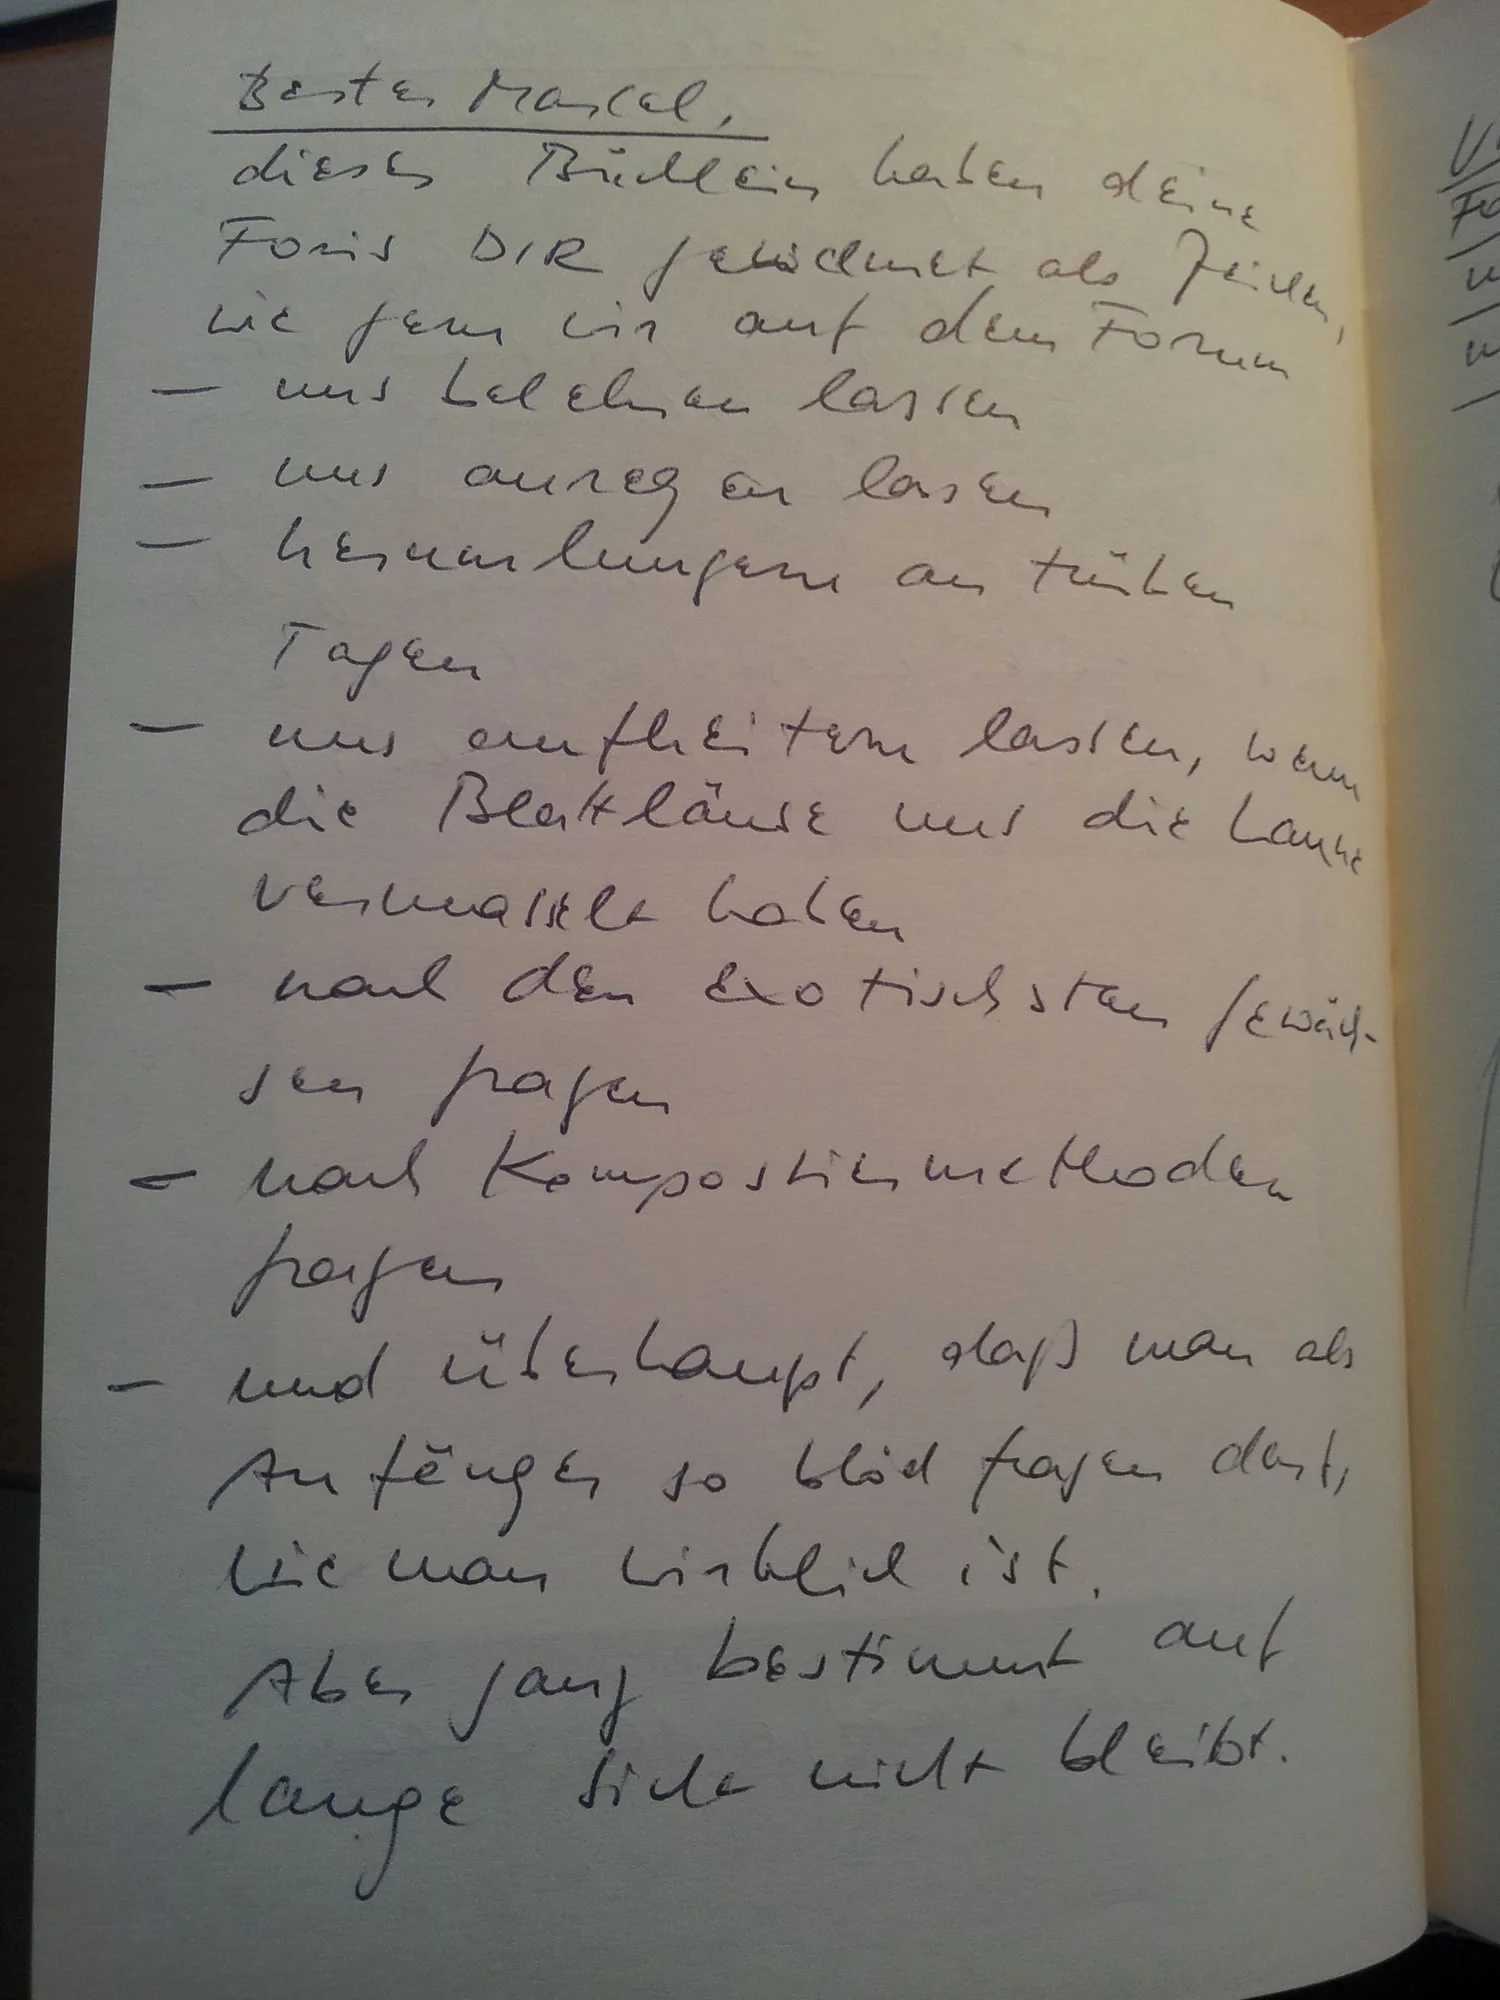 Bester Marcel,
dieses Büchlein haben deine
Foris DIR gewidmet als Zeichen,
wie gern wir auf dem Forum
- uns belehren lassen
- uns anregen lassen
- herumlungern an trüben
Tagen
- uns aufheitern lassen, wenn
die Blattläuse uns die Laune
vermasselt haben
- nach den exotischsten Gewäch-
sen fragen
- nach Kompostiermethoden
fragen
- und überhaupt, daß man als
Anfänger so blöd fragen darf,
wie man wirklich ist.
Aber ganz bestimmt auf
lange Sicht nicht bleibt.